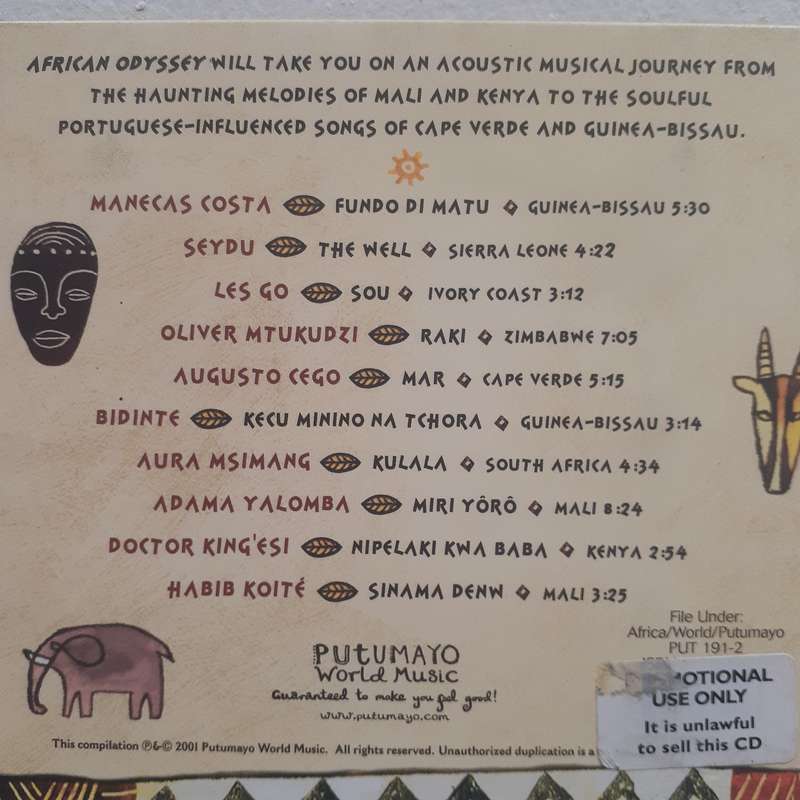 AFRICAN ODYSSEY WILL TAKE YOU ON AN ACOUSTIC MUSICAL JOURNEY FROM
THE HAUNTING MELODIES OF MALI AND KENYA TO THE SOULFUL
PORTUGUESE-INFLUENCED SONGS OF CAPE VERDE AND GUINEA-BISSAU.
MANECAS COSTA FUNDO DI MATU ◇ GUINEA-BISSAU 5:30
SEYDU THE WELL ◇ SIERRA LEONE 4:22
LES GO SOU ◇ IVORY COAST 3:12
OLIVER MTUKUDZI RAKI ◇ ZIMBABWE 7:05
AUGUSTO CEGO MAR ◇ CAPE VERDE 5:15
BIDINTE KECU MININO NA TCHORA ◇ GUINEA-BISSAU 3:14
AURA MSIMANG KULALA ◇ SOUTH AFRICA 4:34
ADAMA YALOMBA MIRI YÔRÔ ◇ MALI 8:24
DOCTOR KING'ESI NIPELAKI KWA BABA ◇ KENYA 2:54
HABIB KOITÉ SINAMA DENW ◇ MALI 3:25
File Under:
Africa/World/Putumayo
PUT 191-2
PUTUMAYO
World Music
Guaranteed to make you feel good!
www.putumayo.com
USE ONLY
It is unlawful
to sell this CD
This compilation ℗&© 2001 Putumayo World Music. All rights reserved. Unauthorized duplication is a